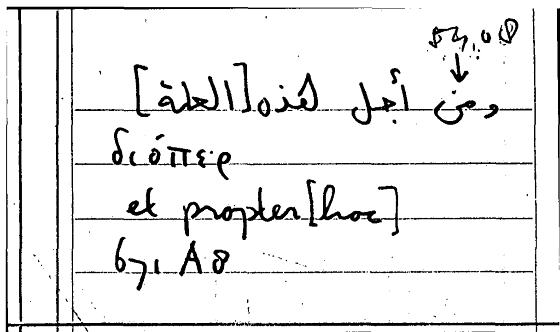 54,08
ومن أجل هذه [العلة]
διόπερ
et propter [hoc]
671 A8